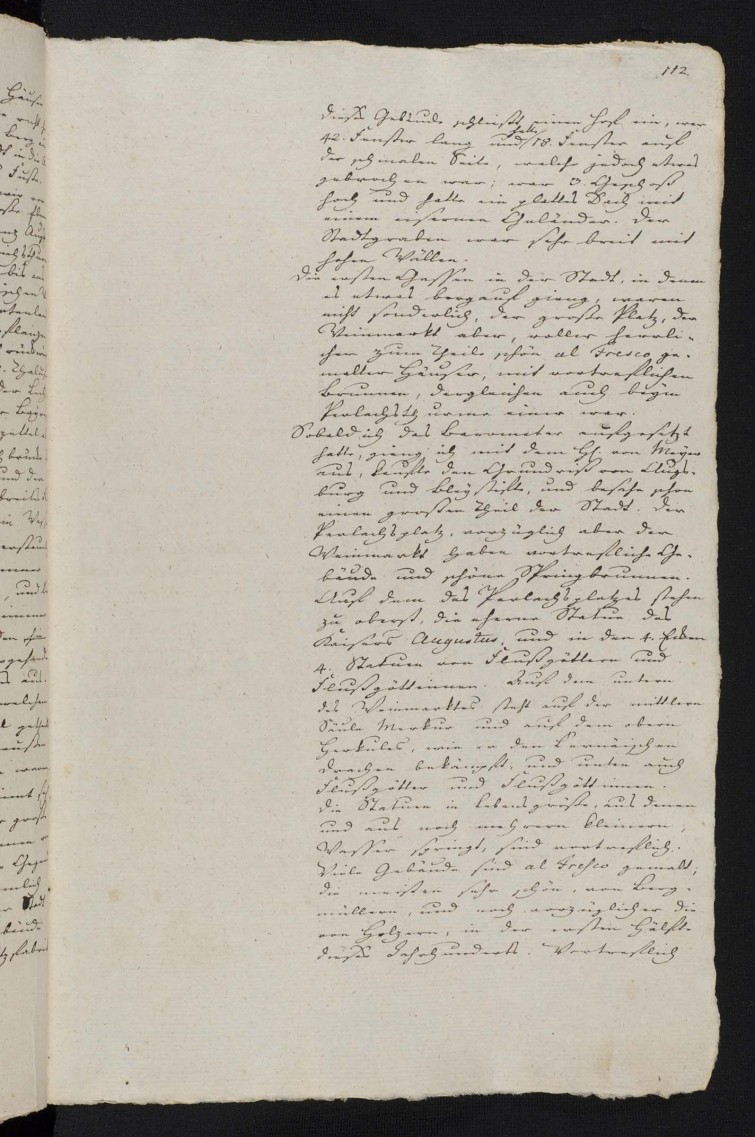 112
dieses Gebäude schließt einen Hof ein, war
42. Fenster lang und hatte 18. Fenster auf
der schmalen Seite, welche jedoch etwas
gebrochen war; war 3. Geschoß
hoch und hatte ein plattes Dach mit
einem eisernen Geländer. Der
Stadtgraben war sehr breit mit
hohen Wällen.
Die ersten Gassen in der Stadt, in denen
es etwas bergauf gieng, waren
nicht sonderlich, der große Platz, der
Weinmarkt aber, voller herrli-
cher zum Theile schön al Fresco ge-
malter Häuser, mit vortreflichen
Brunnen, dergleichen auch beym
Perlachsthurme einer war.
Sobald ich das Barometer aufgesetzt
hatte, gieng ich mit dem H. von Meyer
aus, kaufte den Grundriß von Augs-
burg und Bleystifte, und besahe schon
einen großen Theil der Stadt. Der
Perlachsplatz, vorzüglich aber der
Weinmarkt haben vortrefliche Ge-
bäude und schöne Springbrunnen.
Auf dem des Perlachsplatzes stehen
zu oberst, die eherne Statue des
Kaisers Augustus, und in den 4. Ecken
4. Statuen von Flußgöttern und
Flußgöttinnen. Auf dem untern
des Weinmarktes steht auf der mittlern
Säule Merkur und auf dem obern
Herkules, wie er den Lernäischen
Drachen bekämpft, und unten auch
Flußgötter und Flußgöttinnen.
Die Statuen in Lebensgröße, aus denen
und aus noch mehrern kleinern,
Wasser springt, sind vortreflich.
Viele Gebäude sind al Fresco gemalt;
die meisten sehr schön, von Berg-
müllern, und noch vorzüglicher die
von Holzern, in der ersten Hälfte
dieses Jahrhunderts. Vortreflich